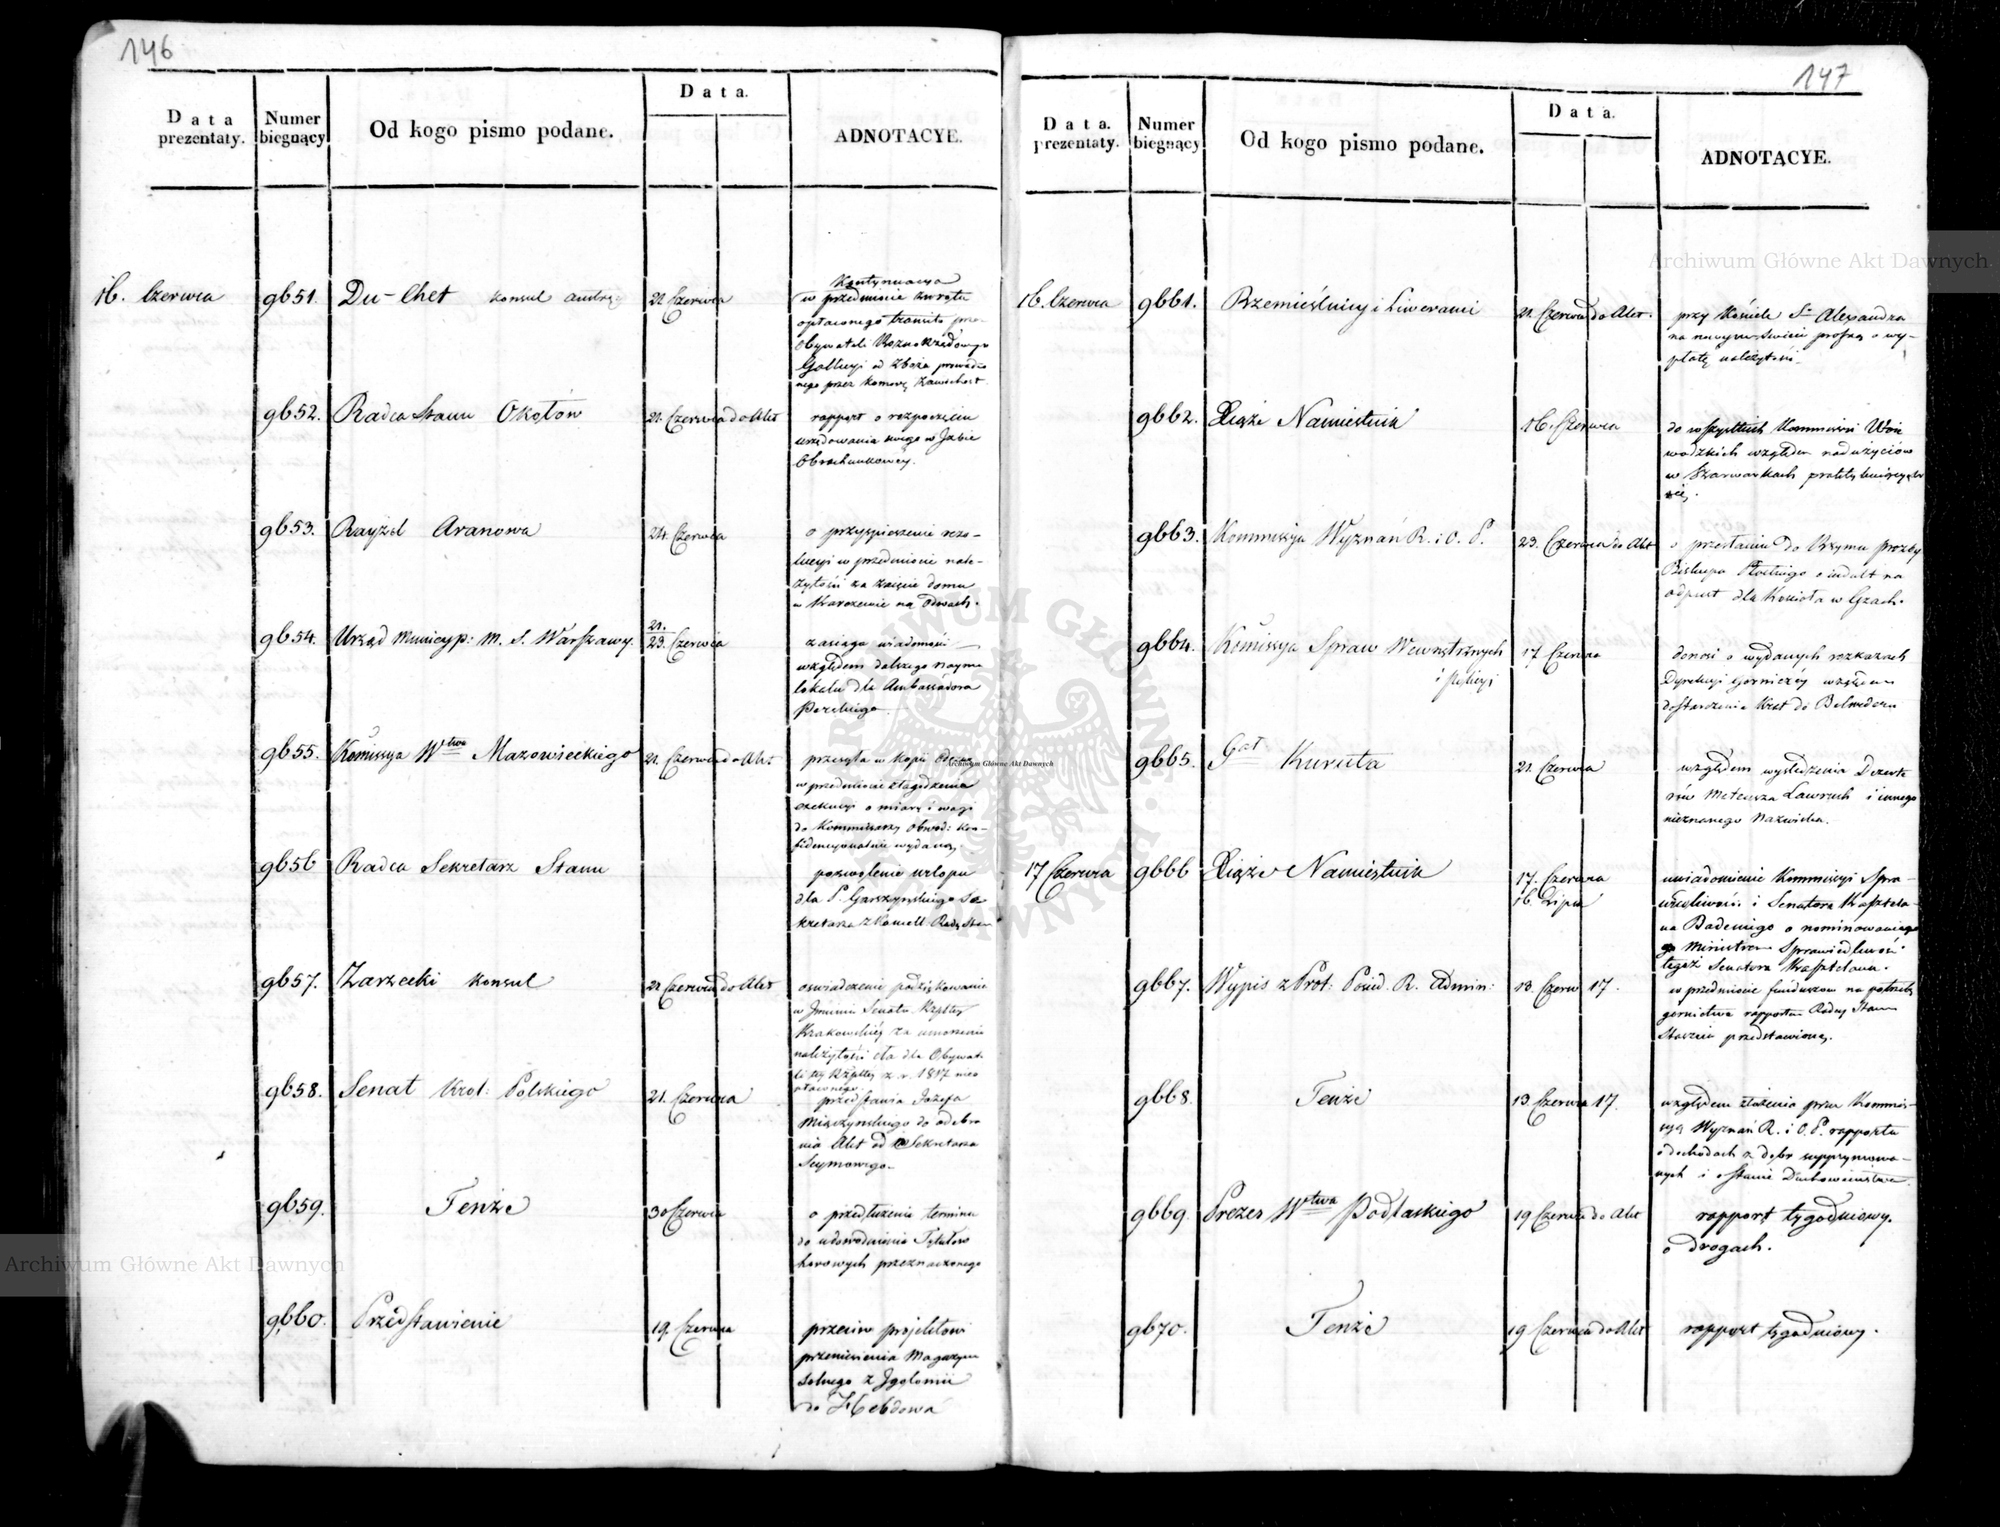 146
Data prezentaty.
Numer biegnący
Od kogo pismo podane.
Data.
ADNOTACYE.
16. Czerwca
9651.
Du-Chet konsul
21 Czerwca
Kontynuacya
w przedmiocie zwrotu
opłaconego transito
Obywateli
Gallicyi od Zboża
nego przez komorę Zawichost
9652.
Radca Stanu Okołow
21. Czerwca do Akt
rapport o rozpoczęciu
urzędowania swego w Izbie
Obrachunkowéy.
9653.
Aranowa
24. Czerwca
o przyspieszenie rezo-
lucyi w przedmiocie nale-
żytości za zajęcie domu
w na Odwach.
9654.
Urząd Municyp: M. S. Warszawy.
21.
23. Czerwca
zasiąga wiadomości
względem dalszego naymu
lokalu dla Ambassadora
Perskiego
9655.
Kommissya Wtwa Mazowieckiego
21. Czerwca do Akt
przesyła w kopii
w przedmiocie złagodzenia
exekucyi o miarę i wagi
do Kommissarzy Obwod: kon-
fidencyonalnie wydaną
9656
Radca Sekretarz Stanu
pozwolenie urlopu
dla P. Garszyńskiego Se
kretarza z Kancell. Rady Stan
9657.
Zarzecki konsul
21 Czerwca do Akt
oswiadczenie podziękowania
w Jmieniu Senatu Rzpltey
Krakowskiéy za umorzenie
należytości cła dla Obywat
teli téy Rzpltey z r. 1817
9658.
Senat Krol: Polskiego
21. Czerwca
przedstawia Jozefa
Miączyńskiego do odebra
nia Akt od Sekretarza
Seymowego
9659.
Tenże
30 Czerwca
o przedłużenie terminu
do udowodnienia Tytułów
honorowych przeznaczonego
9660.
Przedstawienie
19. Czerwca
przeciw projektowi
przeniesienia Magazynu
Solnego z Igołomii
do Hebdowa
147
Data. prezentaty.
Numer biegnący
Od kogo pismo podane.
Data.
ADNOTACYE.
16. Czerwca
9661.
Rzemieślnicy i Liweranci
21. Czerwca do Akt.
przy Kościele S. Alexandra
na nowym-świecie proszą o wy-
płatę należytości
9662.
Xiąże Namiestnik
16. Czerwca
do wszystkich Kommissii Woie
wodzkich względem nadużyciów
w Szarwarkach praktykuiących
się.
9663.
Kommissya Wyznań R. i O. P.
23. Czerwca do Akt
o przesłaniu do Rzymu prozby
Biskupa Płockiego o indult na
odpust dla Kościoła w Gzach.
9664.
Kommissya Spraw Wewnętrznych
i Policyi
17 Czerwca
donosi o wydanych rozkazach
Dyrekcyi Górniczéy względem
dostarczenia Krat do Belwederu
9665.
Gał Kuruta
21. Czerwca
względem wyśledzenia Dezerte
rów Mateusza i innego
nieznanego Nazwiska.
17 Czerwca
9666
Xiąże Namiestnik
17. Czerwca
16. Lipca
uwiadomienie Kommissyi Spra-
wiedliwości i Senatora Kasztela-
na Badeniego o nominowaniu
go Ministrem Sprawiedliwości
tegoż Senatora Kasztelana.
9667.
Wypis z Prot: Posied. R. Admin:
13. Czerw 17.
w przedmiocie funduszow na potrzeby
górnictwa rapportem Radcy Stanu
Staszica przedstawioney.
9668.
Tenże
13. Czerwca 17.
względem złożenia przez Kommis-
syą Wyznań R. i O. P. rapportu
o dochodach z dobr supprymowa-
nych i o stanie Duchowieństwa.
9669.
Prezes Wtwa Podlaskiego
19 Czerwca do Akt
rapport tygodniowy.
o drogach.
9670.
Tenże
19 Czerwca do Akt
rapport tygodniowy.
Archiwum Główne Akt Dawnych
Archiwum Główne Akt Dawnych
Archiwum Główne Akt Dawnych
ARCHIWUM GŁÓWNE AKT DAWNYCH